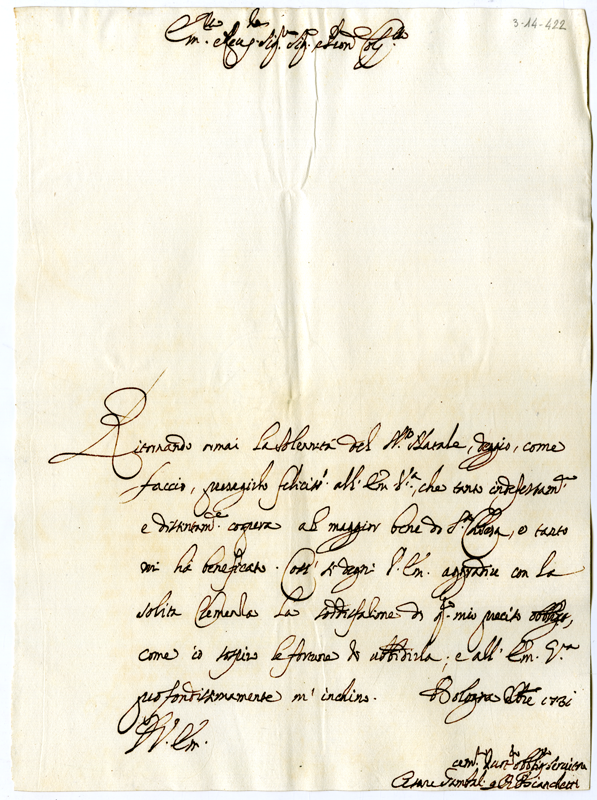 3-14-422
Em.mo e Rev.mo Sig. Sig. Pron Col.mo
Ritornando omai la solennità del S.mo Natale, deggio, come
faccio, presagirlo feliciss.o all'Em. V.ra, che tanto indefessam.te
e distintam.te coopera al maggior bene di S.ta Chiesa, e tanto
mi hà beneficato. Così si degni V. Em. aggradire con la
solita Clemenza la sodisfazione di q.to mio preciso obbligo,
come io sospiro le fortune di ubbidirla; e all'Em. V.ra
profondissimamente m'inchino. Bologna Xbre 1731
Di V. Em.
Um.mo Dev.mo Obblig.mo Servitore
Cesare Bianchetti